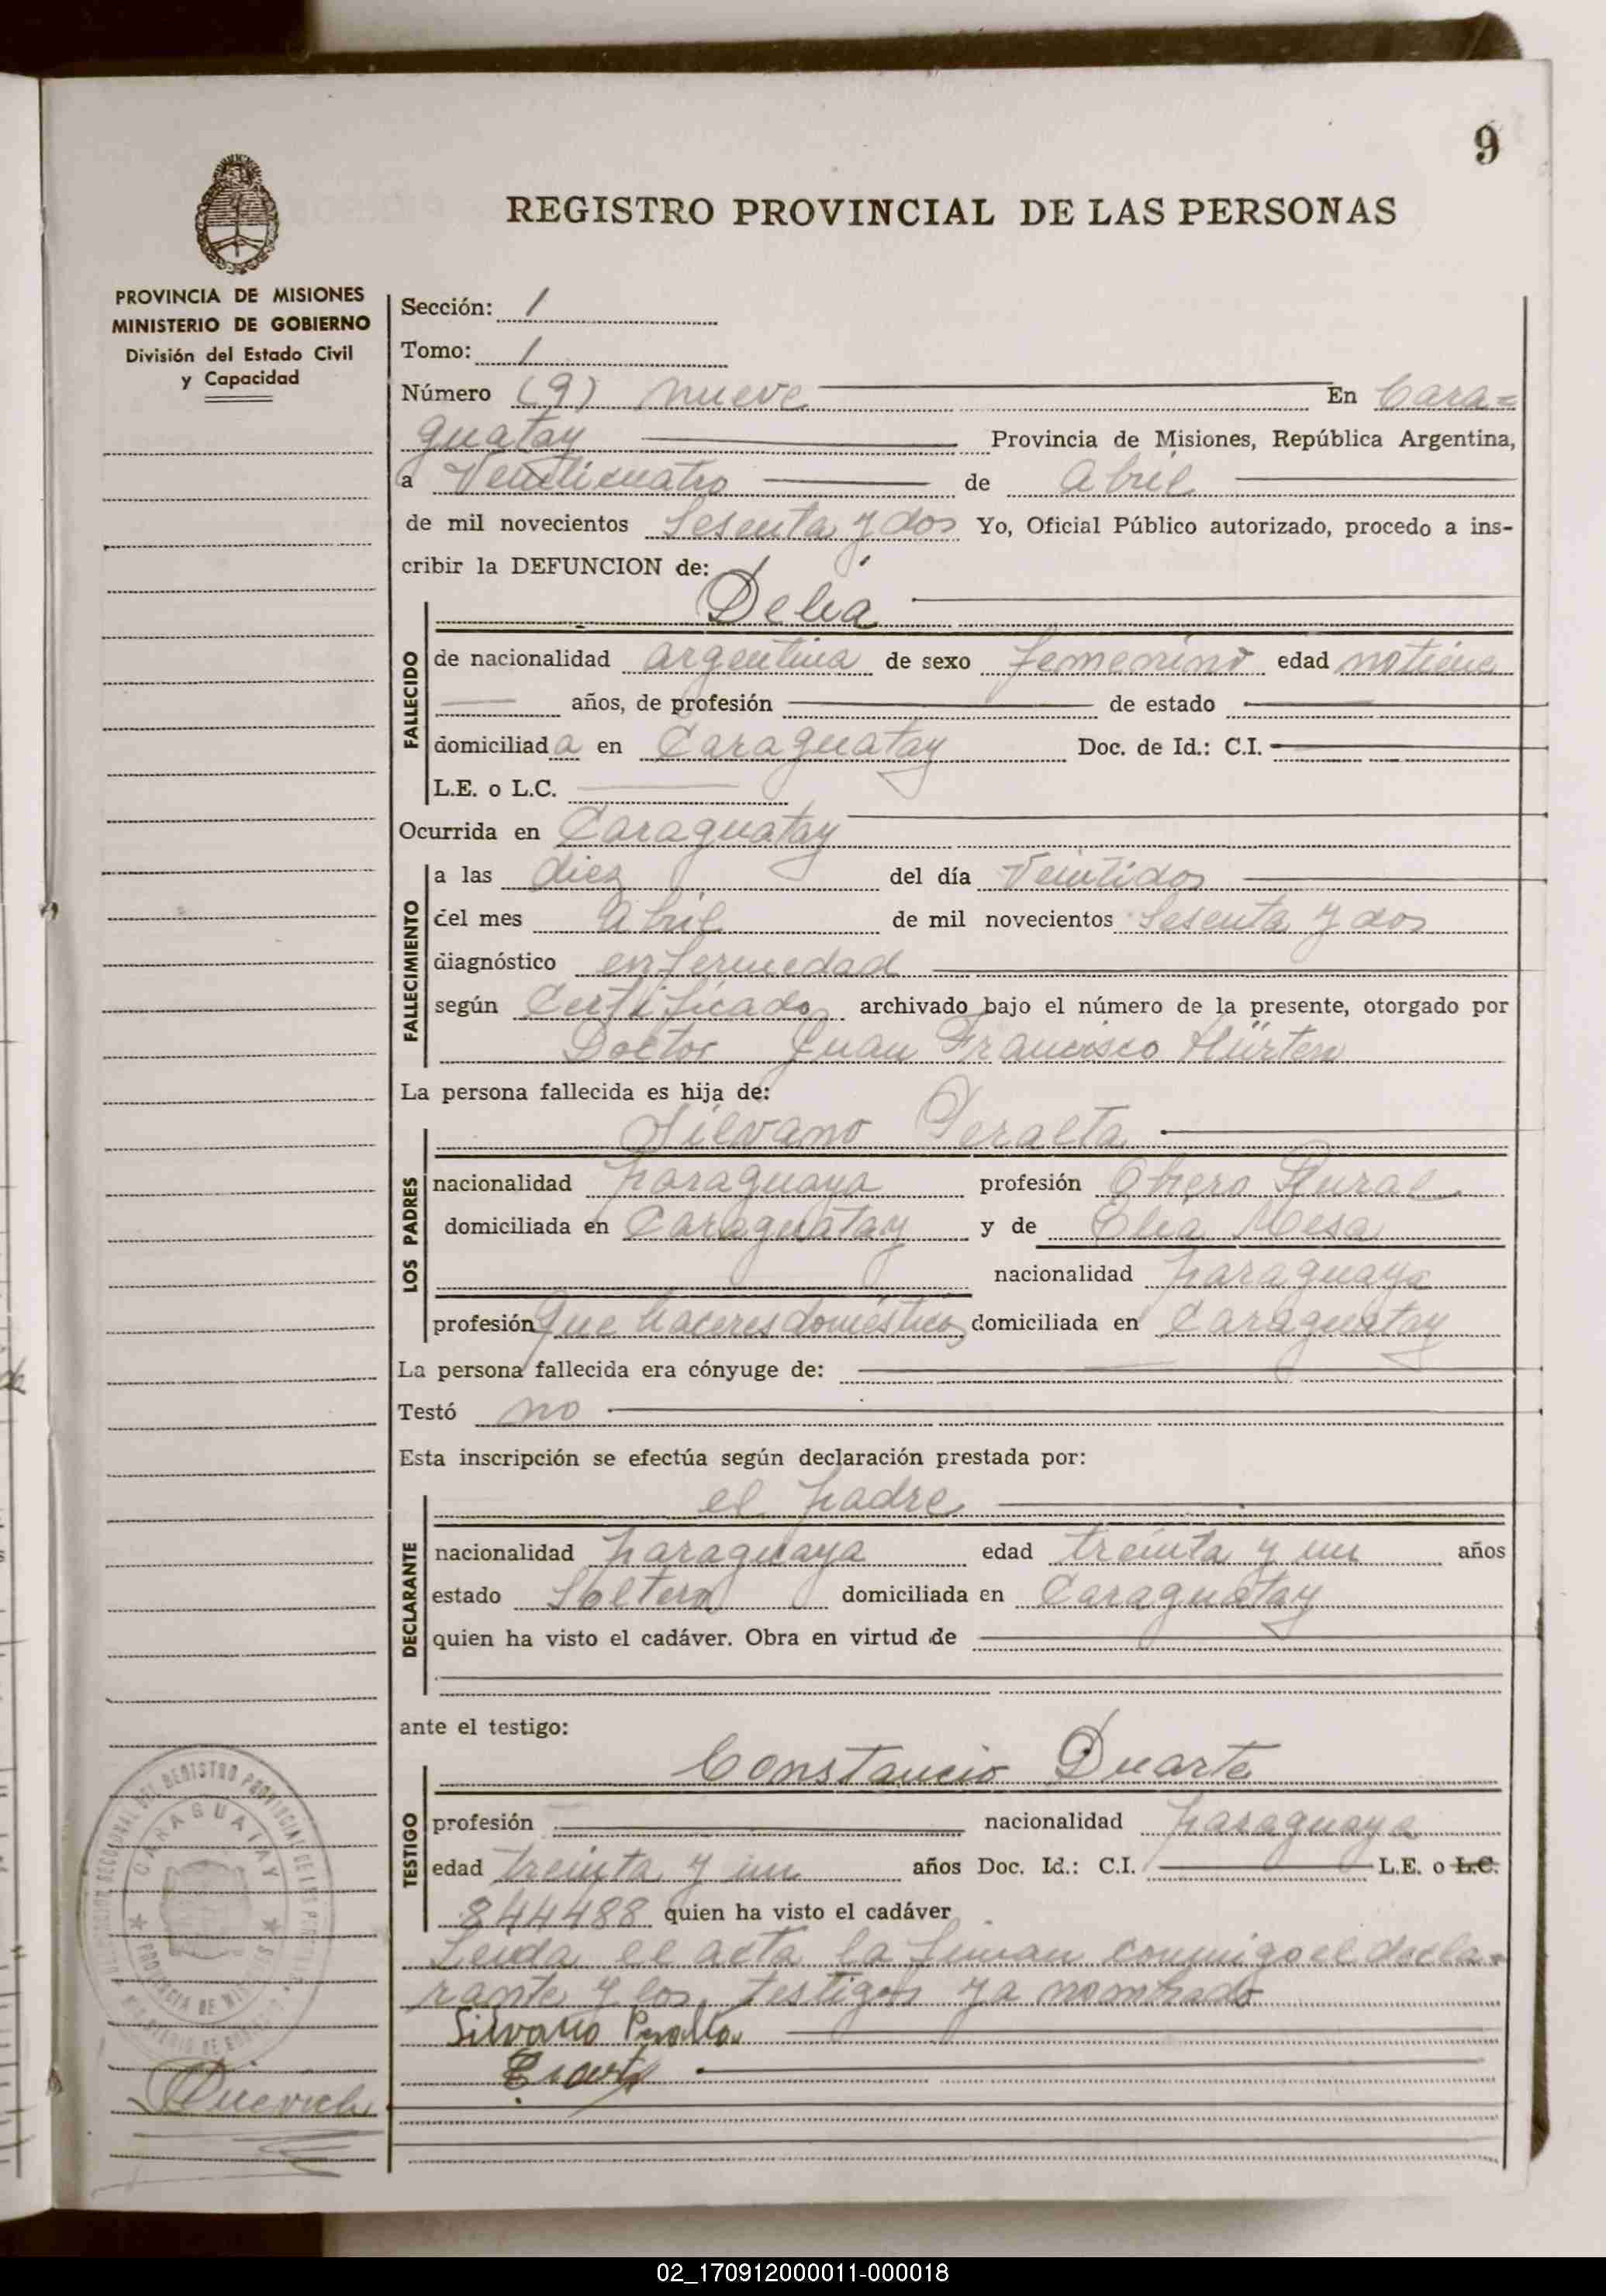 9
REGISTRO PROVINCIAL DE LAS PERSONAS
PROVINCIA DE MISIONES
MINISTERIO DE GOBIERNO
División del Estado Civil
y Capacidad
Sección: 1
Tomo: 1
Número (9) nueve En Cara=
guatay Provincia de Misiones, República Argentina,
a Veinticuatro de abril
de mil novecientos Sesenta y dos Yo, Oficial Público autorizado, procedo a ins-
cribir la DEFUNCION de:
Delia
FALLECIDO
de nacionalidad argentina de sexo femenino edad no tiene
años, de profesión de estado
domiciliada en Caraguatay Doc. de Id.: C.I.
L.E. o L.C.
Ocurrida en Caraguatay
FALLECIMIENTO
a las diez del día Veintidos
del mes abril de mil novecientos Sesenta y dos
diagnóstico enfermedad
según Certificado archivado bajo el número de la presente, otorgado por
Doctor Juan Francisco Hürten
La persona fallecida es hija de:
Silvano Peralta
LOS PADRES
nacionalidad paraguaya profesión Obrero Rural
domiciliada en Caraguatay y de Elia Mesa
nacionalidad paraguaya
profesión que haceres domésticos domiciliada en Caraguatay
La persona fallecida era cónyuge de:
Testó no
Esta inscripción se efectúa según declaración prestada por:
el padre
DECLARANTE
nacionalidad paraguaya edad treinta y un años
estado Soltero domiciliada en Caraguatay
quien ha visto el cadáver. Obra en virtud de
ante el testigo:
Constancio Duarte
TESTIGO
profesión nacionalidad paraguaya
edad treinta y un años Doc. Id.: C.I. L.E. o L.C.
844488 quien ha visto el cadáver
Leida el acta la firman conmigo el decla=
rante y los testigos ya nombrado
Silvano Peralta
CARAGUATAY
PROVINCIA DE MISIONES
02_170912000011-000018